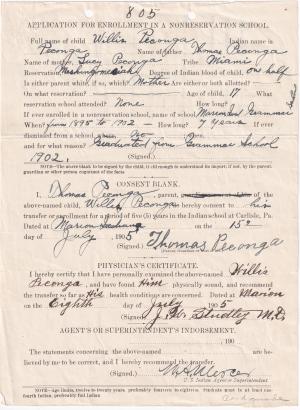 805
APPLICATION FOR ENROLLMENT IN A NONRESERVATION SCHOOL.
Full name of child Willis Peconga Indian name is
Peconga Name of father Thomas Peconga
Name of mother Lucy Peconga Tribe Miami
Reservation Degree of Indian blood of child one half
Is either parent white, if so, which? Mother Are either or both allotted?
On what reservation? Age of child, 17 What
reservation school attended? None How long?
If ever enrolled in a nonreservation school, name of school Marion Ind Grammar School
When? from 1895 to 1902 How long? 7 years If ever
dismissed from a school, No
and for what reason? Graduated from Grammar School
1902. (Signed.)
NOTE.—The above blank to be signed by the child, if old enough to understand its import; if not, by the parent, guardian or other person cognizant of the facts
CONSENT BLANK.
I, Thomas Peconga parent, of the
above-named child, Willis Peconga do hereby consent to his
transfer or enrollment for a period of five (5) years in the Indian school at Carlisle, Pa.
Dated at Marion Indiana on the 15th
day of July 1905
(Signed.) Thomas Peconga
PHYSICIAN'S CERTIFICATE.
I hereby certify that I have personally examined the above-named Willis
Peconga, and have found Him physically sound, and recommend
the transfer so far as His health conditions are concerned. Dated at Marion
on the Eighth day of July 1905
(Signed.) M.D.
AGENT'S OR SUPERINTENDENT'S INDORSEMENT.
The statements concerning the above-named are be-
lieved by me to be correct, and I hereby recommend the transfer.
(Signed.) Mercer
U.S. Indian Agent or Superintendent
NOTE.—Age limits, twelve to twenty years, preferably fourteen to eighteen. Students must be at least one-fourth Indian, preferably full Indian